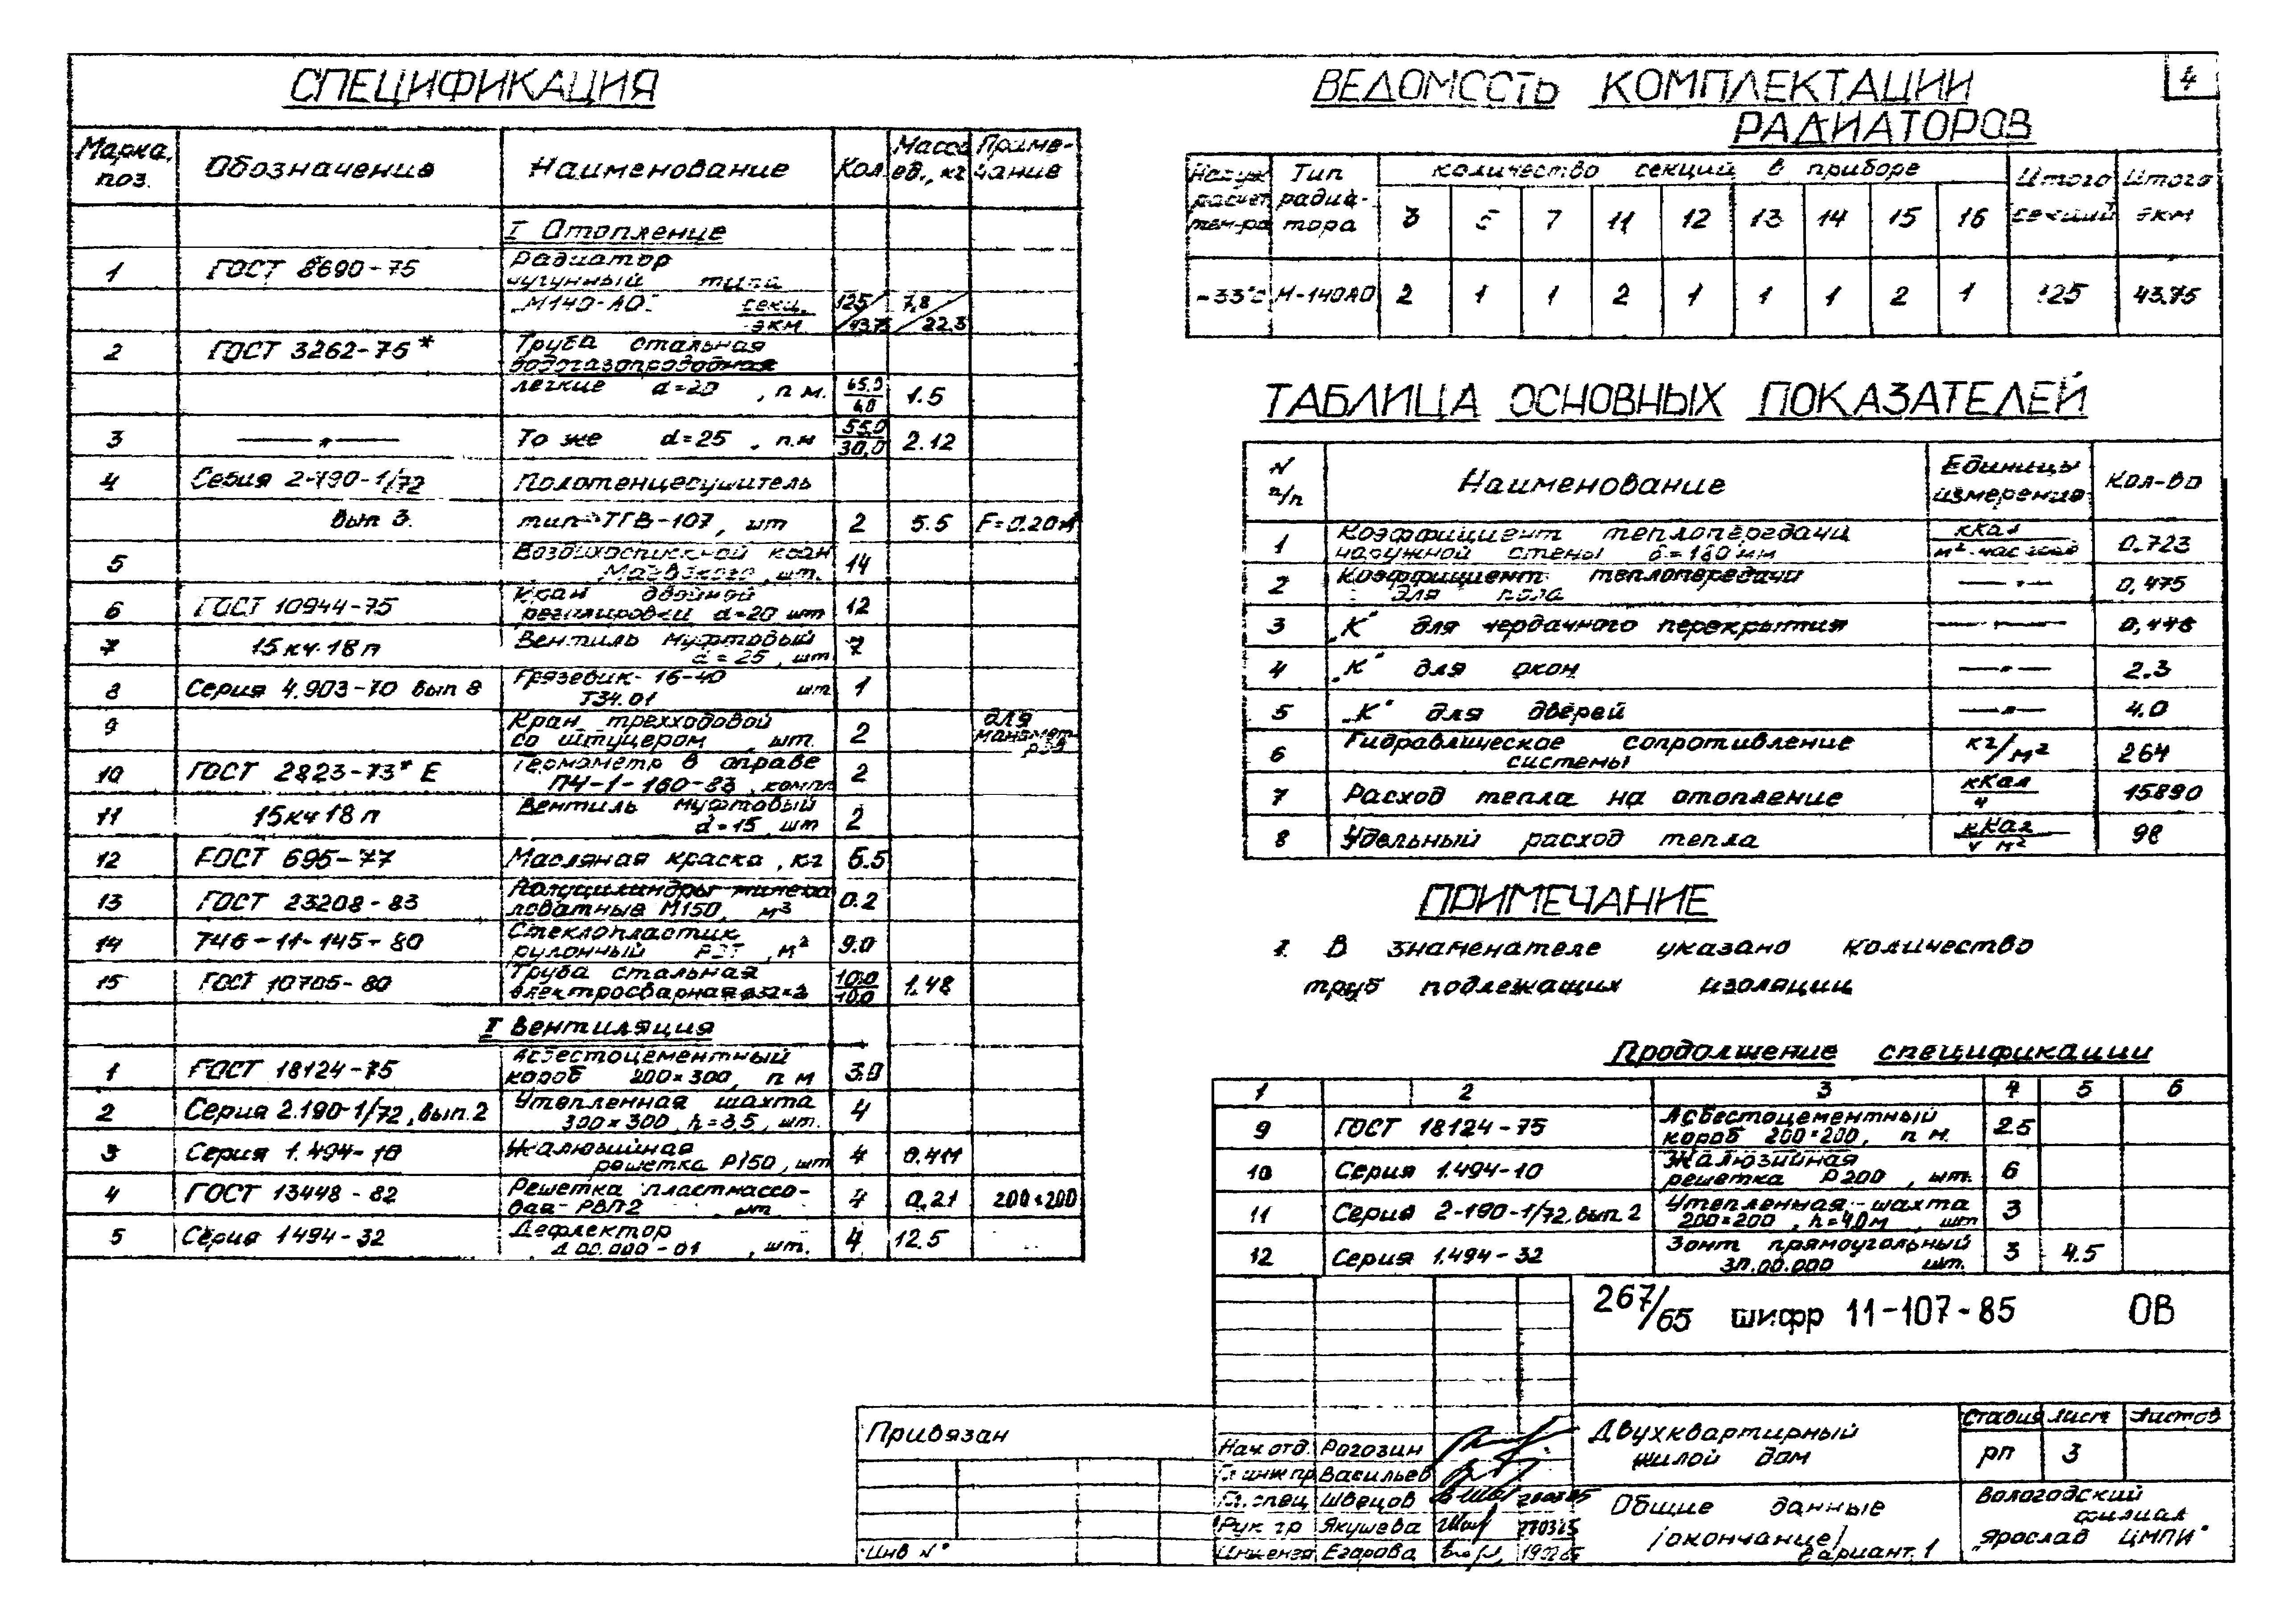 4
СПЕЦИФИКАЦИЯ
Марка, поз. Обозначение Наименование Кол. Масса ед., кг Приме-чание
I Отопление
1 ГОСТ 8690-75 Радиатор
чугунный типа
„М140-АО" секц. 125 7,8
экм 43.75 22.3
2 ГОСТ 3262-75* Труба стальная
водогазопроводная
легкие d=20 , п.м. 65.0/4.0 1.5
3 —„— То же d=25 , п.м 55.0/30,0 2.12
4 Серия 2-190-1/72 Полотенцесушитель
вып 3. тип ТГВ-107, шт 2 5.5 F=0.20м
5 Воздухоспускной кран
Маевского, шт. 14
6 ГОСТ 10944-75 Кран двойной
регулировки d=20 шт 12
7 15кч 18п Вентиль муфтовый
d=25, шт 7
8 Серия 4.903-10 вып 8 Грязевик 16-40
Т34.01 шт 1
9 Кран трехходовой для
со штуцером , шт. 2 манометра
10 ГОСТ 2823-73* Е Термометр в оправе
П4-1-160-83, компл 2
11 15кч18п Вентиль муфтовый
d=15 шт 2
12 ГОСТ 695-77 Масляная краска, кг 6.5
13 ГОСТ 23208-83 Полуцилиндры минера
ловатные М150, м³ 0.2
14 ТУ6-11-145-80 Стеклопластик
рулонный РСТ , м² 9.0
15 ГОСТ 10705-80 Труба стальная
электросварная 10.0/10.0 1.48
II Вентиляция
1 ГОСТ 18124-75 Асбестоцементный
короб 200×300, п м 3.0
2 Серия 2.190-1/72, вып.2 Утепленная шахта
300×300, h=3.5, шт. 4
3 Серия 1.494-10 Жалюзийная
решетка Р150, шт 4
4 ГОСТ 13448-82 Решетка пластмассо-
вая РВП2 шт 4 0.21 200×200
5 Серия 1494-32 Дефлектор
Д00.000-01 , шт. 4 12.5
ВЕДОМОСТЬ КОМПЛЕКТАЦИИ
РАДИАТОРОВ
Наруж расчет тем-ра Тип радиа-тора количество секций в приборе Итого секций Итого экм
3 5 7 11 12 13 14 15 16
-33°С М-140АО 2 1 1 2 1 1 1 2 1 125 43.75
ТАБЛИЦА ОСНОВНЫХ ПОКАЗАТЕЛЕЙ
N п/п Наименование Единицы измерения Кол-во
1 Коэффициент теплопередачи ккал
наружной стены δ=180мм м² час град 0.723
2 Коэффициент теплопередачи
для пола —„— 0,475
3 „К" для чердачного перекрытия —„— 0,478
4 „К" для окон —„— 2.3
5 „К" для дверей —„— 4.0
6 Гидравлическое сопротивление
системы кг/м² 264
7 Расход тепла на отопление ккал/ч 15890
8 Удельный расход тепла ккал/ч м² 98
ПРИМЕЧАНИЕ
1. В знаменателе указано количество
труб подлежащих изоляции
Продолжение спецификации
1 2 3 4 5 6
9 ГОСТ 18124-75 Асбестоцементный
короб 200×200, п м. 25
10 Серия 1.494-10 Жалюзийная
решетка Р200 , шт. 6
11 Серия 2-190-1/72, вып. 2 Утепленная шахта
200×200 , h=4.0м, шт 3
12 Серия 1.494-32 Зонт прямоугольный
ЗП.00.000 шт. 3 4.5
267/65 шифр 11-107-85 ОВ
Привязан
Инв N°
Нач. отд. Рогозин
Гл инж пр Васильев
Гл. спец Швецов
Рук. гр Якушева
Инженер Егорова
Двухквартирный
жилой дом
Стадия Лист Листов
рп 3
Общие данные
/окончание/
Вариант 1
Вологодский
филиал
„Ярослав ЦМПИ"